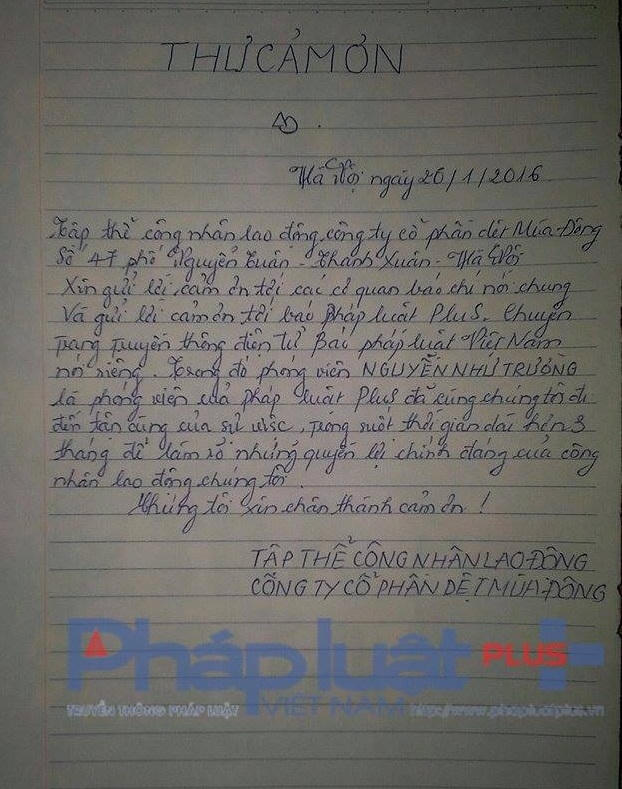 THƯ CẢM ƠN
Hà Nội ngày 26/1/2016
Tập thể công nhân lao động, công ty cổ phần dệt Mùa-Đông
Số 47 phố Nguyễn Tuân - Thanh Xuân - Hà Nội
Xin gửi lời cảm ơn tới các cơ quan báo chí nói chung
Và gửi lời cảm ơn tới báo Pháp luật Plus. Chuyên
trang truyền thông điện tử Báo pháp luật Việt Nam
nói riêng. Trong đó phóng viên NGUYỄN NHƯ TRƯỜNG
là phóng viên của pháp luật Plus đã cùng chúng tôi đi
đến tận cùng của sự việc, trong suốt thời gian dài hơn 3
tháng để làm rõ những quyền lợi chính đáng của công
nhân lao động chúng tôi.
Chúng tôi xin chân thành cảm ơn !
TẬP THỂ CÔNG NHÂN LAO ĐỘNG
CÔNG TY CỔ PHẦN DỆT MÙA-ĐÔNG
Pháp luật PLUS
TRUYỀN THÔNG PHÁP LUẬT VIỆT NAM http://www.phapluatplus.vn